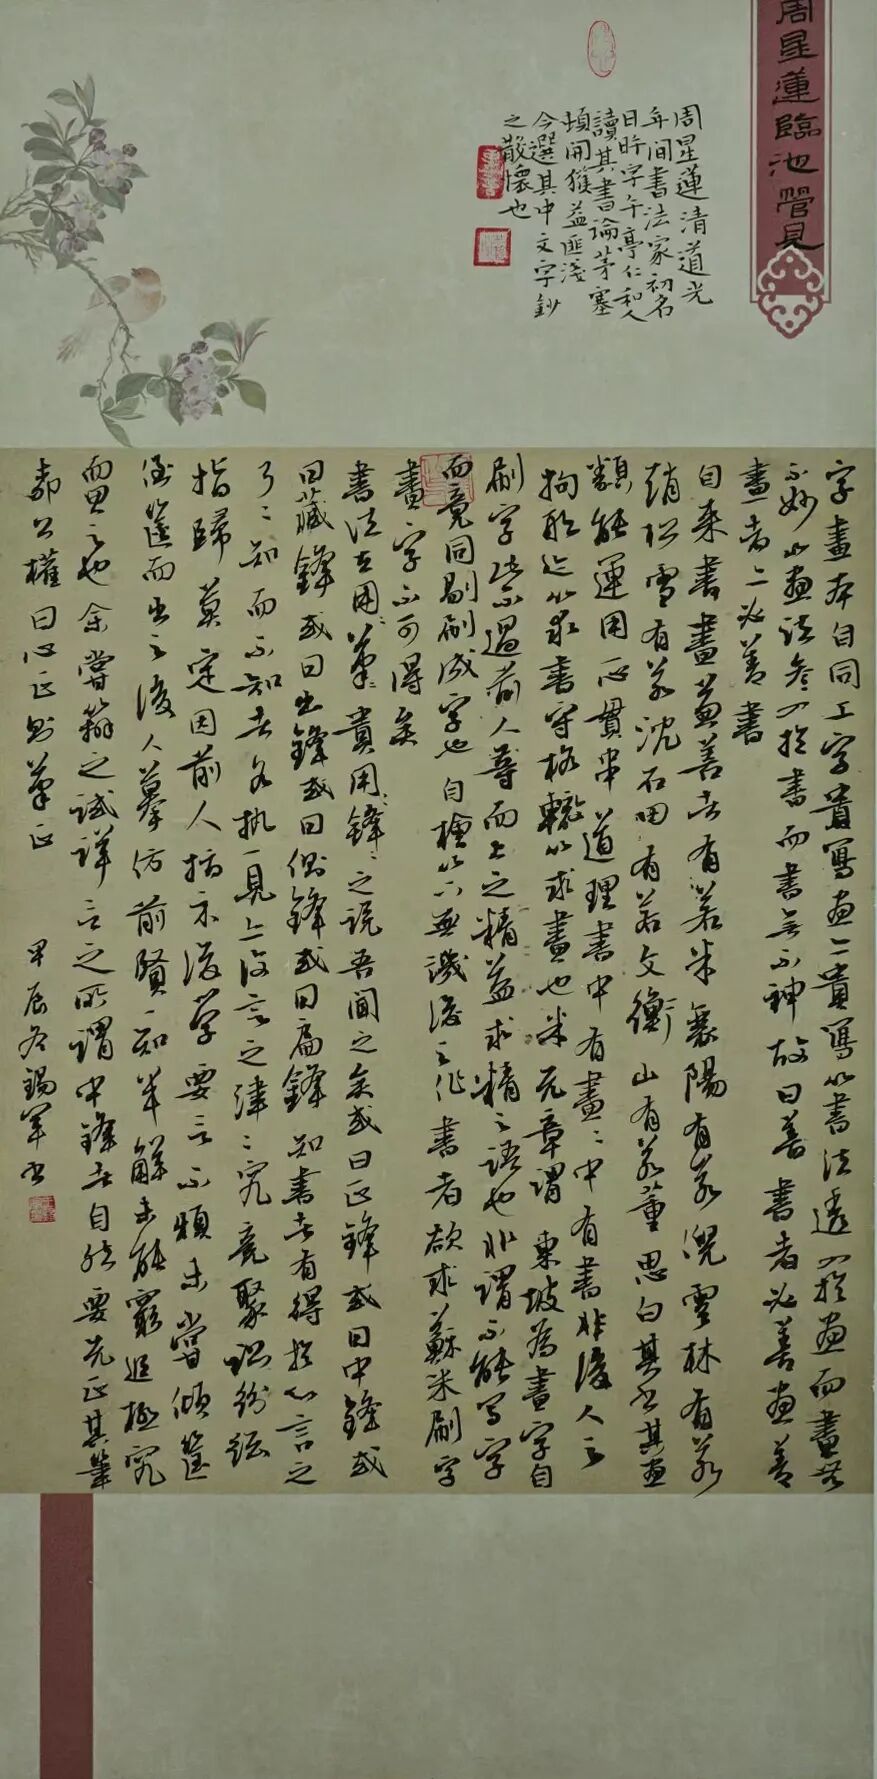 周星蓮臨池管見
周星蓮清道光
年間書法家初名
日昨字午亭仁和人
讀其書論茅塞
頓開獲益匪淺
今選其中文字鈔
之散懷也
字畫本自同工字貴寫畫亦貴寫以書法透入於畫而畫無
不妙以畫法參入於書而書無不神故曰善書者必善畫善
畫者亦必善書
自來書畫兼善者有若米襄陽有若倪雲林有若
趙松雪有若沈石田有若文衡山有若董思白其書其畫
類能運用一心貫串道理書中有畫畫中有書非後人之
拘形迹以求書守格轍以求畫也米元章謂東坡為畫字自
刷字此不過前人等而上之精益求精之語也非謂不能寫字
而竟同剔刷成字也自檜以下無譏後之作書者欲求蘇米刷字
畫字不可得矣
書法在用筆用筆貴用鋒用鋒之說吾聞之矣或曰正鋒或曰中鋒或
曰藏鋒或曰出鋒或曰側鋒或曰扁鋒知書者有得於心言之
了了知而不知者各執一見亦復言之津津究竟聚訟紛紜
指歸莫定因前人指示後學要言不煩未嘗傾筐
倒篋而出之後人摹仿前賢一知半解未能窮追極究
而思之也余嘗辯之試詳言之所謂中鋒者自然要先正其筆
柳公權曰心正則筆正
甲辰冬錫軍書